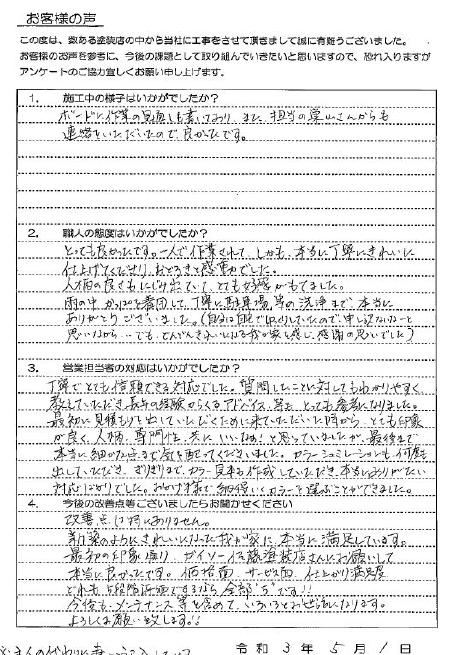 お客様の声
この度は、数ある塗装店の中から当社に工事をさせて頂きまして誠に有難うございました。
お客様のお声を参考に、今後の課題として取り組んでいきたいと思いますので、恐れ入りますが
アンケートのご協力宜しくお願い申し上げます。
1. 施工中の様子はいかがでしたか?
ボードに作業の見通しも書いており、また、担当の栗山さんからも
連絡をいただいたので、良かったです。
2. 職人の態度はいかがでしたか?
とっても良かったです。一人で作業されて、しかも、本当に丁寧にきれいに
仕上げてくださり、おどろきと感動でした。
人柄の良さもにじみ出ていて、とても好感がもてました。
雨の中かっぱを着用して、丁寧に駐車場等の洗浄まで、本当に
ありがとうございました。
思いながら…でも、どんどんきれいになる我が家を感じ、感謝の思いでした)
3. 営業担当者の対応はいかがでしたか?
丁寧でとても信頼できる対応でした。質問したことに対してもわかりやすく
教えていただき、長年の経験からくるアドバイス等も、とっても参考になりました。
最初に見積もりを出していただくために来ていただいた時から、とても印象
が良く、人柄、専門性、共に、いいなぁ!と思っていましたが、最後まで
本当に細かな所まで気を配ってくださいました。カラーシミュレーションも何度も
出していただき、ぎりぎりまで、カラー見本も作成していただき、本当にありがたい
対応ばかりでした。おかげ様で納得いくカラーを選ぶことができました。
4. 今後の改善点等ございましたらお聞かせください
改善点は何にありません。
新築のようにきれいになった我が家に、本当に満足しています。
最初の印象通り、ガイソー 佐藤塗装店さんにお願いして
本当に良かったです。価格面、サービス面、仕上がり満足度
どれも5段階評価できるなら全部"5"です!!
今後も、メンテナンス等も含めて、いろいろとお世話になります。
よろしくお願い致します。
令和 3 年 5 月 1 日